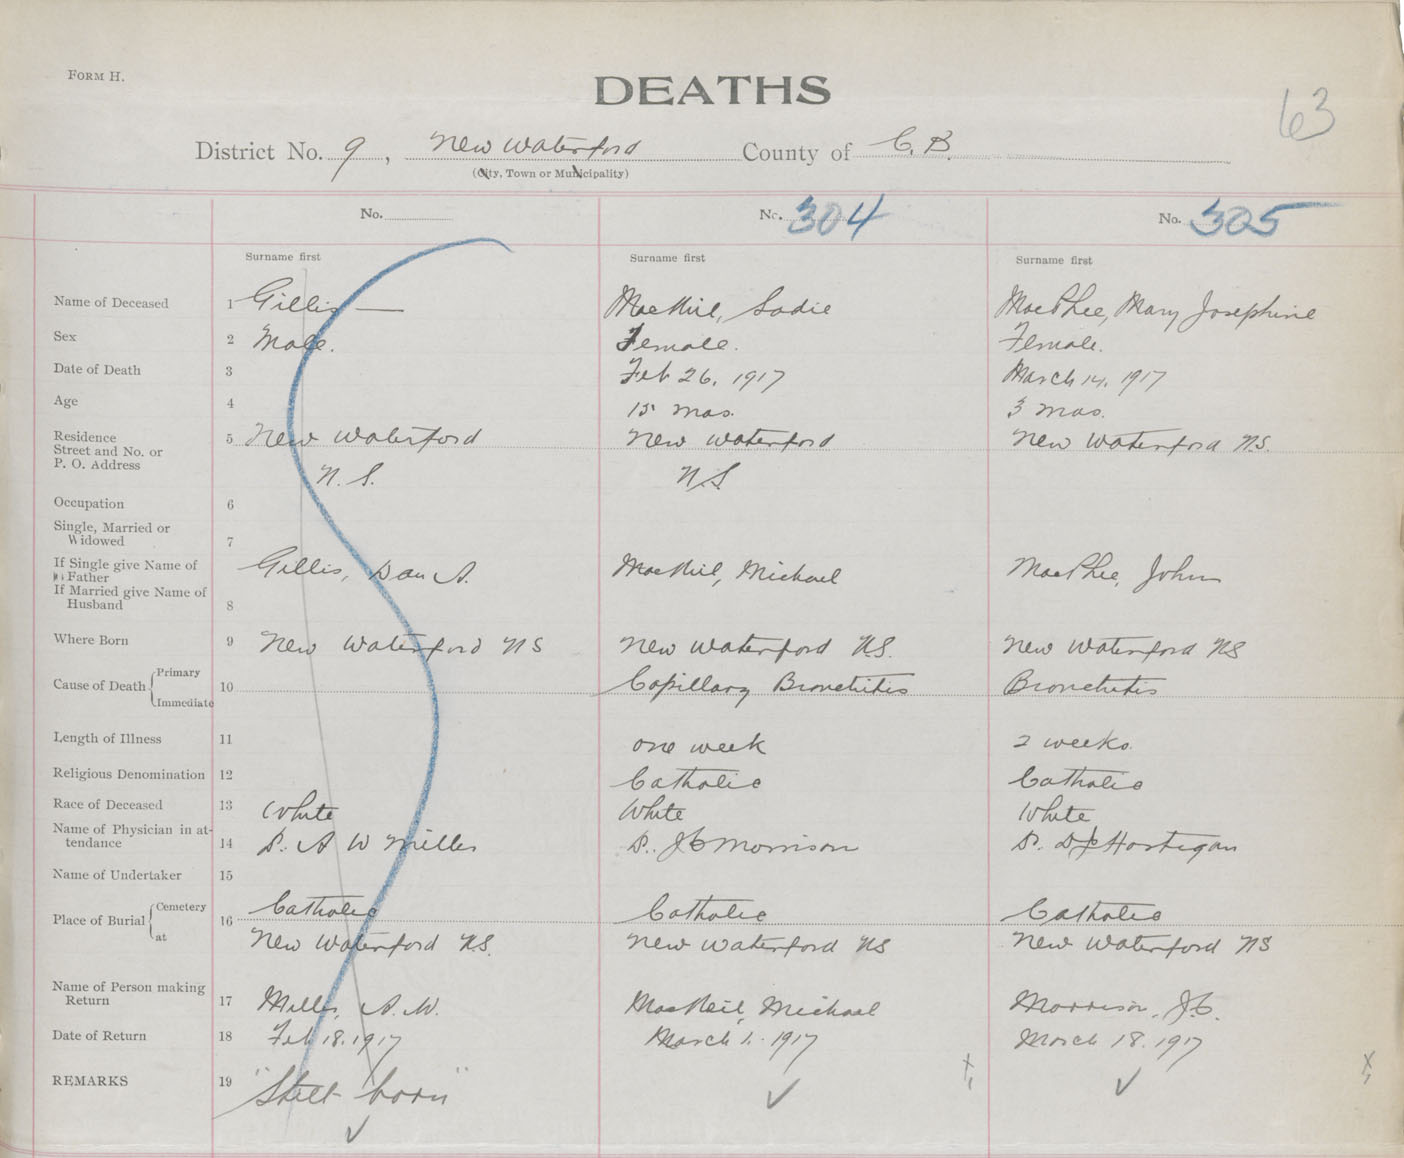 FORM H.
DEATHS
63
District No. 9, New Waterford County of C. B.
(City, Town or Municipality)
No. No. 304 No. 305
Surname first Surname first Surname first
Name of Deceased 1 Gillis — MacNeil, Sadie MacPhee, Mary Josephine
Sex 2 Male. Female. Female.
Date of Death 3 Feb 26, 1917 March 14, 1917
Age 4 15 mos. 3 mos.
Residence
Street and No. or
P. O. Address
5 New Waterford New Waterford New Waterford N.S.
N. S. N.S.
Occupation 6
Single, Married or
Widowed 7
If Single give Name of
Father
If Married give Name of
Husband 8
Gillis, Dan A. MacNeil, Michael MacPhee, John
Where Born 9 New Waterford NS New Waterford N.S. New Waterford NS
Cause of Death Primary
Immediate
10 Capillary Bronchitis Bronchitis
Length of Illness 11 one week 2 weeks.
Religious Denomination 12 Catholic Catholic
Race of Deceased 13 White White White
Name of Physician in at-
tendance 14 D. A W Miller D. J C Morrison D. Hartigan
Name of Undertaker 15
Place of Burial Cemetery
at
16 Catholic Catholic Catholic
New Waterford N.S. New Waterford NS New Waterford NS
Name of Person making
Return 17 Miller, A. W. MacNeil, Michael Morrison, J.C.
Date of Return 18 Feb 18. 1917 March 1. 1917 March 18. 1917
REMARKS 19 "Still born"